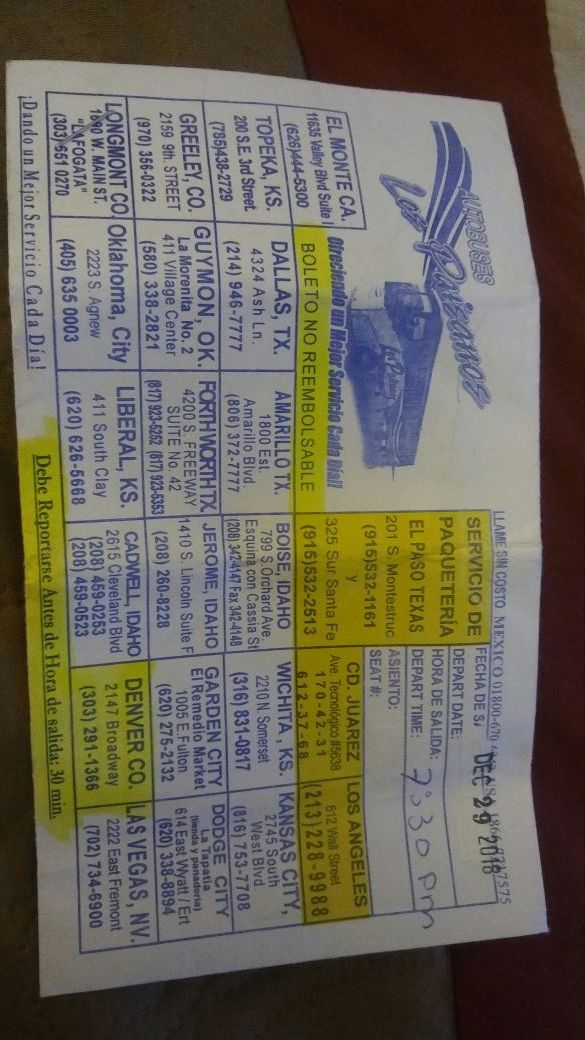 AUTOBUSES
Los Paisanos
Los Paisanos
Ofreciendo un Mejor Servicio Cada Día!!
BOLETO NO REEMBOLSABLE
LLAME SIN COSTO MEXICO 01800-670
7575
SERVICIO DE
PAQUETERÍA
EL PASO TEXAS
201 S. Montestruc
(915)532-1161
y
325 Sur Santa Fe
(915)532-2513
FECHA DE
DEPART DATE:
DEC 29 2018
HORA DE SALIDA:
DEPART TIME:
7:30 pm
ASIENTO:
SEAT #:
CD. JUAREZ
Ave. Tecnológico #5638
170-42-31
612-37-68
LOS ANGELES
612 Wall Street
(213)228-9988
EL MONTE CA.
11635 Valley Blvd Suite I
(626)444-5300
TOPEKA, KS.
200 S.E. 3rd Street
(785)438-2729
DALLAS, TX.
4324 Ash Ln.
(214) 946-7777
AMARILLO TX.
1800 Est.
Amarillo Blvd.
(806) 372-7777
BOISE, IDAHO
799 S. Orchard Ave.
Esquina con Cassia St
(208) 342-4147 Fax 342-4148
WICHITA, KS.
2210 N. Somerset
(316) 831-0817
KANSAS CITY,
2745 South
West Blvd.
(816) 753-7708
GREELEY, CO.
2159 9th. STREET
(970) 356-0322
GUYMON, OK.
La Morenita No. 2
411 Village Center
(580) 338-2821
FORTH WORTH TX.
4200 S. FREEWAY
SUITE No. 42
(817) 923-5252, (817) 923-5353
JEROME, IDAHO
1410 S. Lincoln Suite F
(208) 260-8228
GARDEN CITY
El Remedio Market
1005 E. Fulton
(620) 275-2132
DODGE CITY
La Tapatia
(tienda y panadería)
614 East Wyatt / Ert
(620) 338-8894
LONGMONT CO.
1690 W. MAIN ST.
"LA FOGATA"
(303) 651 0270
Oklahoma, City
2223 S. Agnew
(405) 635 0003
LIBERAL, KS.
411 South Clay
(620) 626-5668
CADWELL, IDAHO
2615 Cleveland Blvd
(208) 459-0253
(208) 459-0523
DENVER CO.
2147 Broadway
(303) 291-1366
LAS VEGAS, NV.
2222 East Fremont
(702) 734-6900
¡Dando un Mejor Servicio Cada Día!
Debe Reportarse Antes de Hora de salida: 30 min.